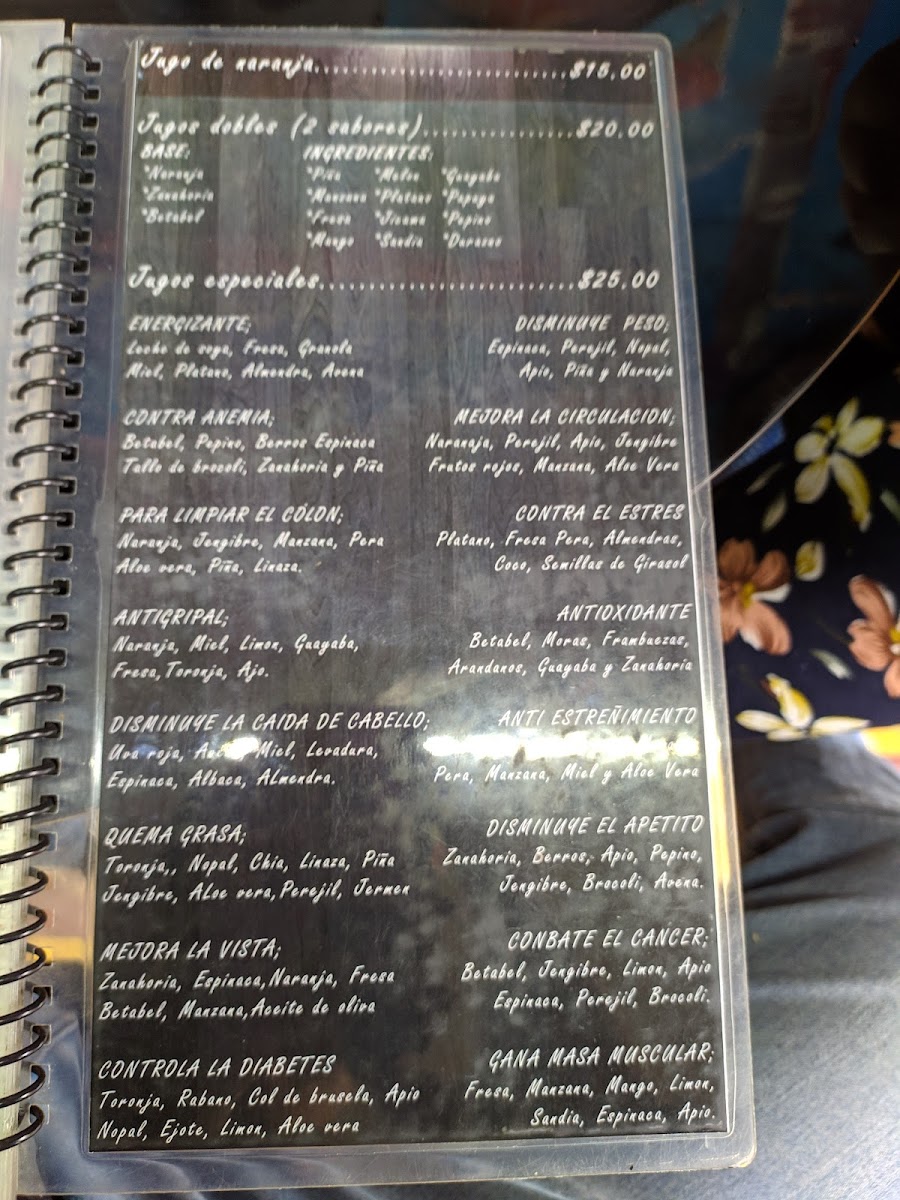 Jugo de naranja..............................$15.00
Jugos dobles (2 sabores)..................$20.00
BASE: INGREDIENTES:
*Naranja *Piña *Melon *Guayaba
*Zanahoria *Manzana *Platano *Papaya
*Betabel *Fresa *Jicama *Pepino
*Mango *Sandia *Durazno
Jugos especiales..............................$25.00
ENERGIZANTE;
Leche de soya, Fresa, Granola
Miel, Platano, Almendra, Avena
DISMINUYE PESO;
Espinaca, Perejil, Nopal,
Apio, Piña y Naranja
CONTRA ANEMIA;
Betabel, Pepino, Berros Espinaca
Tallo de brocoli, Zanahoria y Piña
MEJORA LA CIRCULACION;
Naranaja, Perejil, Apio, Jengibre
Frutos rojos, Manzana, Aloe Vera
PARA LIMPIAR EL COLON;
Naranja, Jengibre, Manzana, Pera
Aloe vera, Piña, Linaza.
CONTRA EL ESTRES
Platano, Fresa Pera, Almendras,
Coco, Semillas de Girasol
ANTIGRIPAL;
Naranja, Miel, Limon, Guayaba,
Fresa,Toronja, Ajo.
ANTIOXIDANTE
Betabel, Moras, Frambuezas,
Arandanos, Guayaba y Zanahoria
DISMINUYE LA CAIDA DE CABELLO;
Uva roja, Miel, Levadura,
Espinaca, Albaca, ALmendra.
ANTI ESTREÑIMIENTO
Pera, Manzana, Miel y Aloe Vera
QUEMA GRASA;
Toronja,, Nopal, Chia, Linaza, Piña
Jengibre, ALoe vera,Perejil, Jermen
DISMINUYE EL APETITO
Zanahoria, Berros, Apio, Pepino,
Jengibre, Brocoli, Avena.
MEJORA LA VISTA;
Zanahoria, Espinaca,Naranja, Fresa
Betabel, Manzana,Aceite de oliva
CONBATE EL CANCER;
Betabel, Jengibre, Limon, Apio
Espinaca, Perejil, Brocoli.
CONTROLA LA DIABETES
Toronja, Rabano, Col de brusela, Apio
Nopal, Ejote, Limon, Aloe vera
GANA MASA MUSCULAR;
Fresa, Manzana, Mango, Limon,
Sandia, Espinaca, Apio.